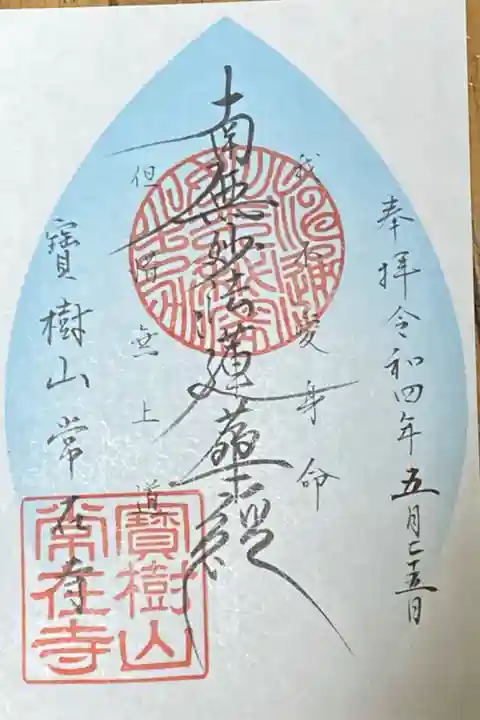 奉拝 令和四年五月二十五日
我不愛身命
南無妙法蓮華経
但惜無上道
寶樹山常在寺
寶樹山
常在寺